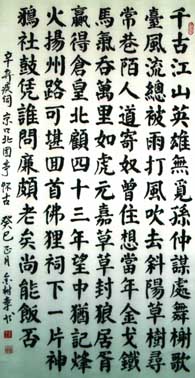 千古江山英雄無覓孫仲謀處舞榭歌
臺風流總被雨打風吹去斜陽草樹尋
常巷陌人道寄奴曾住想當年金戈鐵
馬氣吞萬里如虎元嘉草草封狼居胥
贏得倉皇北顧四十三年望中猶記烽
火揚州路可堪回首佛狸祠下一片神
鴉社鼓凭誰問廉頗老矣尚能飯否
辛弃疾詞京口北固亭怀古癸巳正月